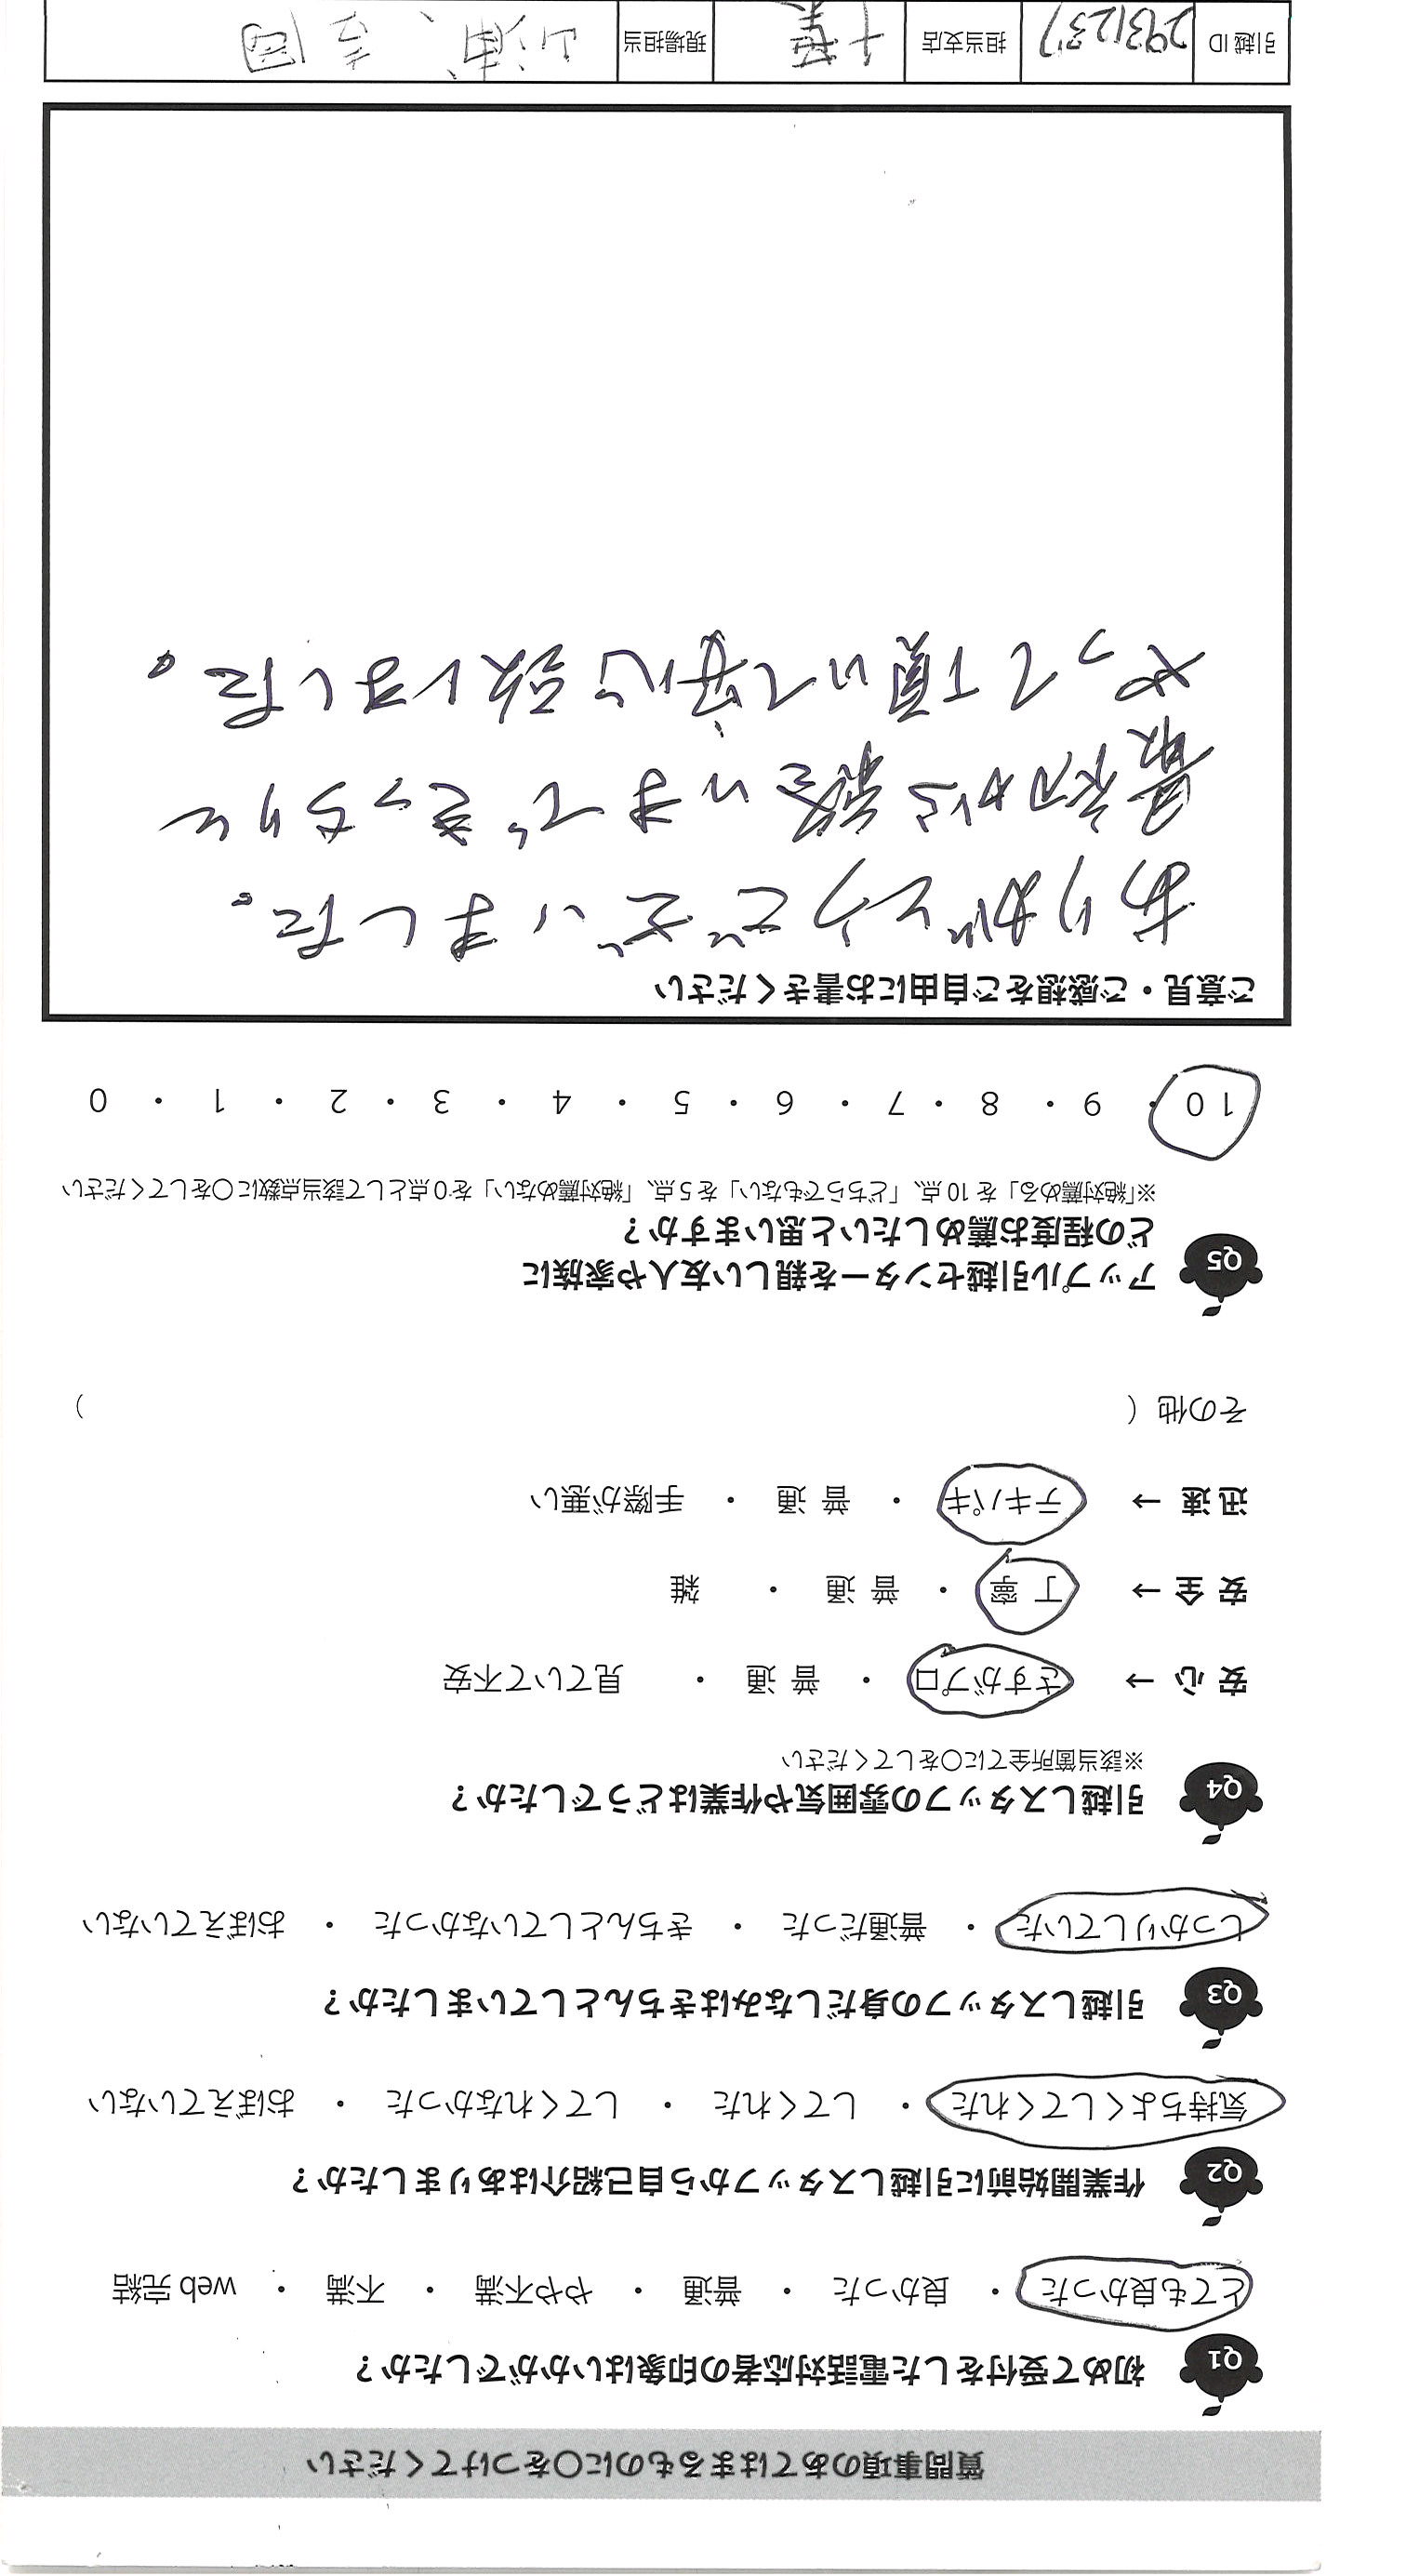 質問事項のあてはまるものに〇をつけてください
Q1 初めて受付をした電話対応者の印象はいかがでしたか？
とても良かった ・ 良かった ・ 普通 ・ やや不満 ・ 不満 ・ web 完結
Q2 作業開始前に引越しスタッフから自己紹介はありましたか？
気持ちよくしてくれた ・ してくれた ・ してくれなかった ・ おぼえていない
Q3 引越しスタッフの身だしなみはきちんとしていましたか？
しっかりしていた ・ 普通だった ・ きちんとしていなかった ・ おぼえていない
Q4 引越しスタッフの雰囲気や作業はどうでしたか？
※該当箇所全てに〇をしてください
安 心 → さすがプロ ・ 普 通 ・ 見ていて不安
安 全 → 丁 寧 ・ 普 通 ・ 雑
迅 速 → テキパキ ・ 普 通 ・ 手際が悪い
その他（ ）
Q5 アップル引越センターを親しい友人や家族に
どの程度お薦めしたいと思いますか？
※「絶対薦める」を 10 点、「どちらでもない」を 5 点、「絶対薦めない」を 0 点として該当点数に〇をしてください
10 ・ 9 ・ 8 ・ 7 ・ 6 ・ 5 ・ 4 ・ 3 ・ 2 ・ 1 ・ 0
ご意見・ご感想をご自由にお書きください
ありがとうございました。
最初から終いまできっちりと
やって頂いて安心致しました。
引越 ID 2931237 担当支店 千葉 現場担当 山浦、吉岡